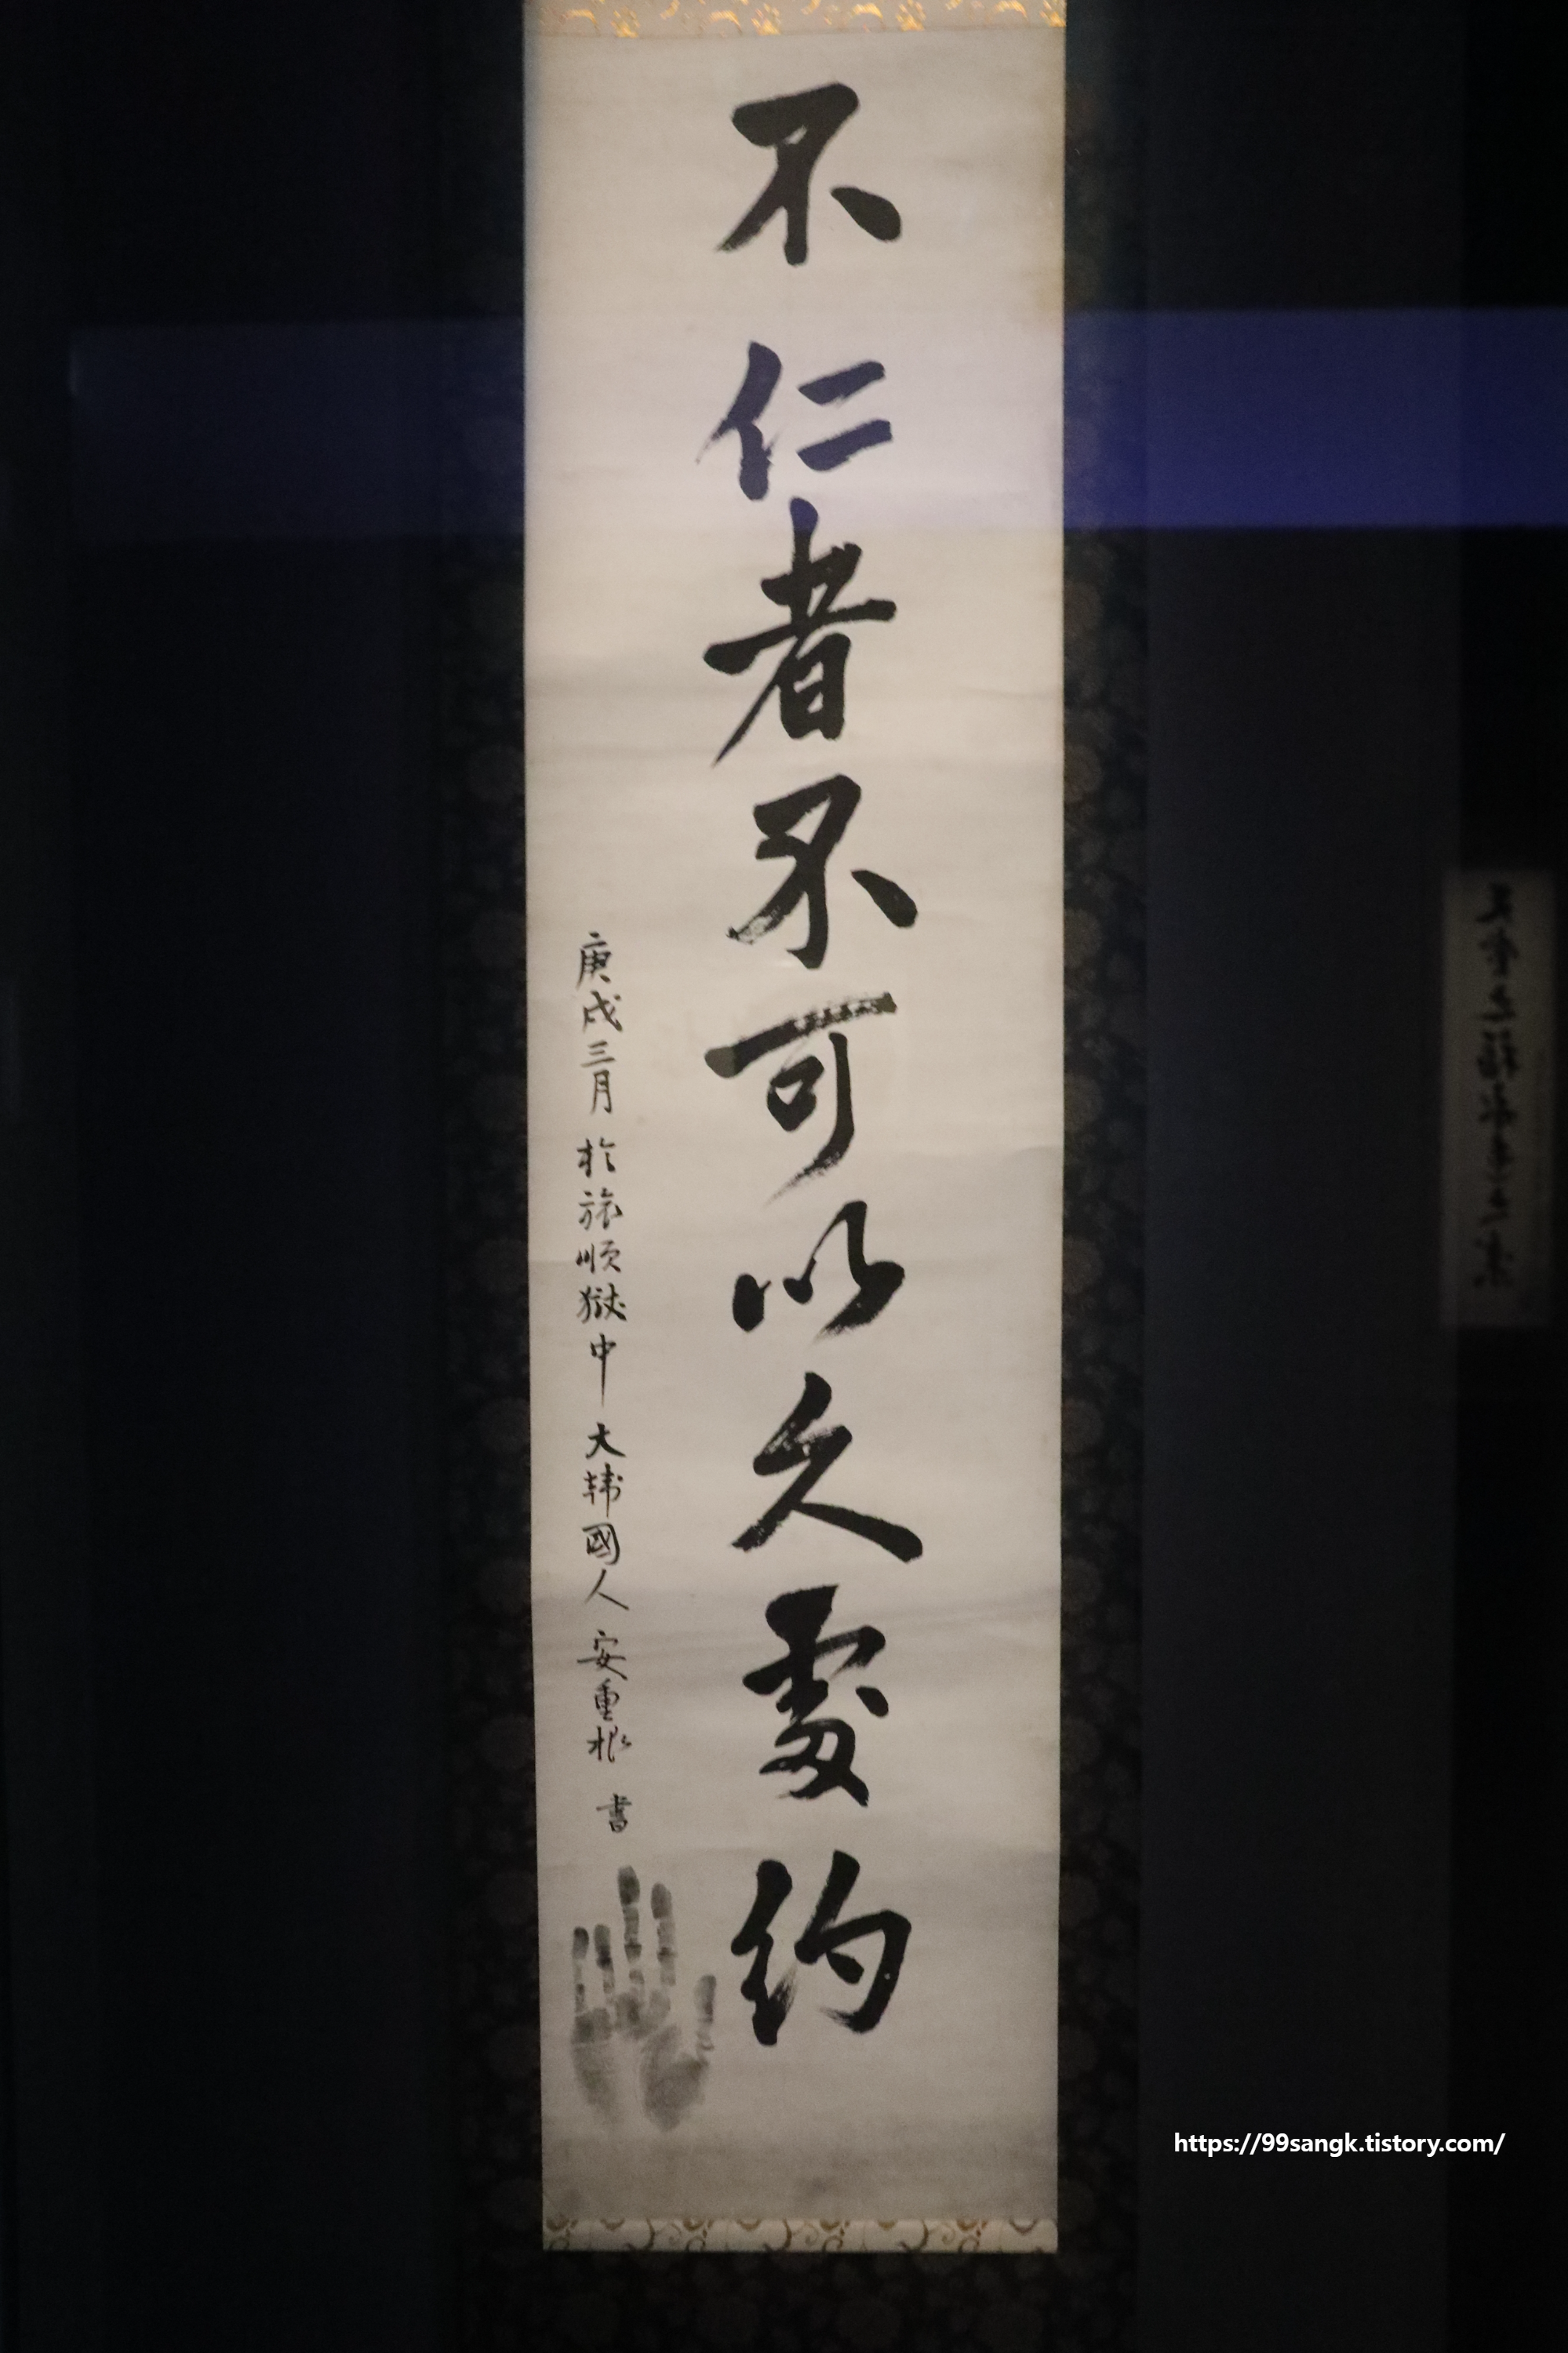 不仁者不可以久處約
庚戌三月 於旅順獄中 大韓國人 安重根 書
https://99sangk.tistory.com/